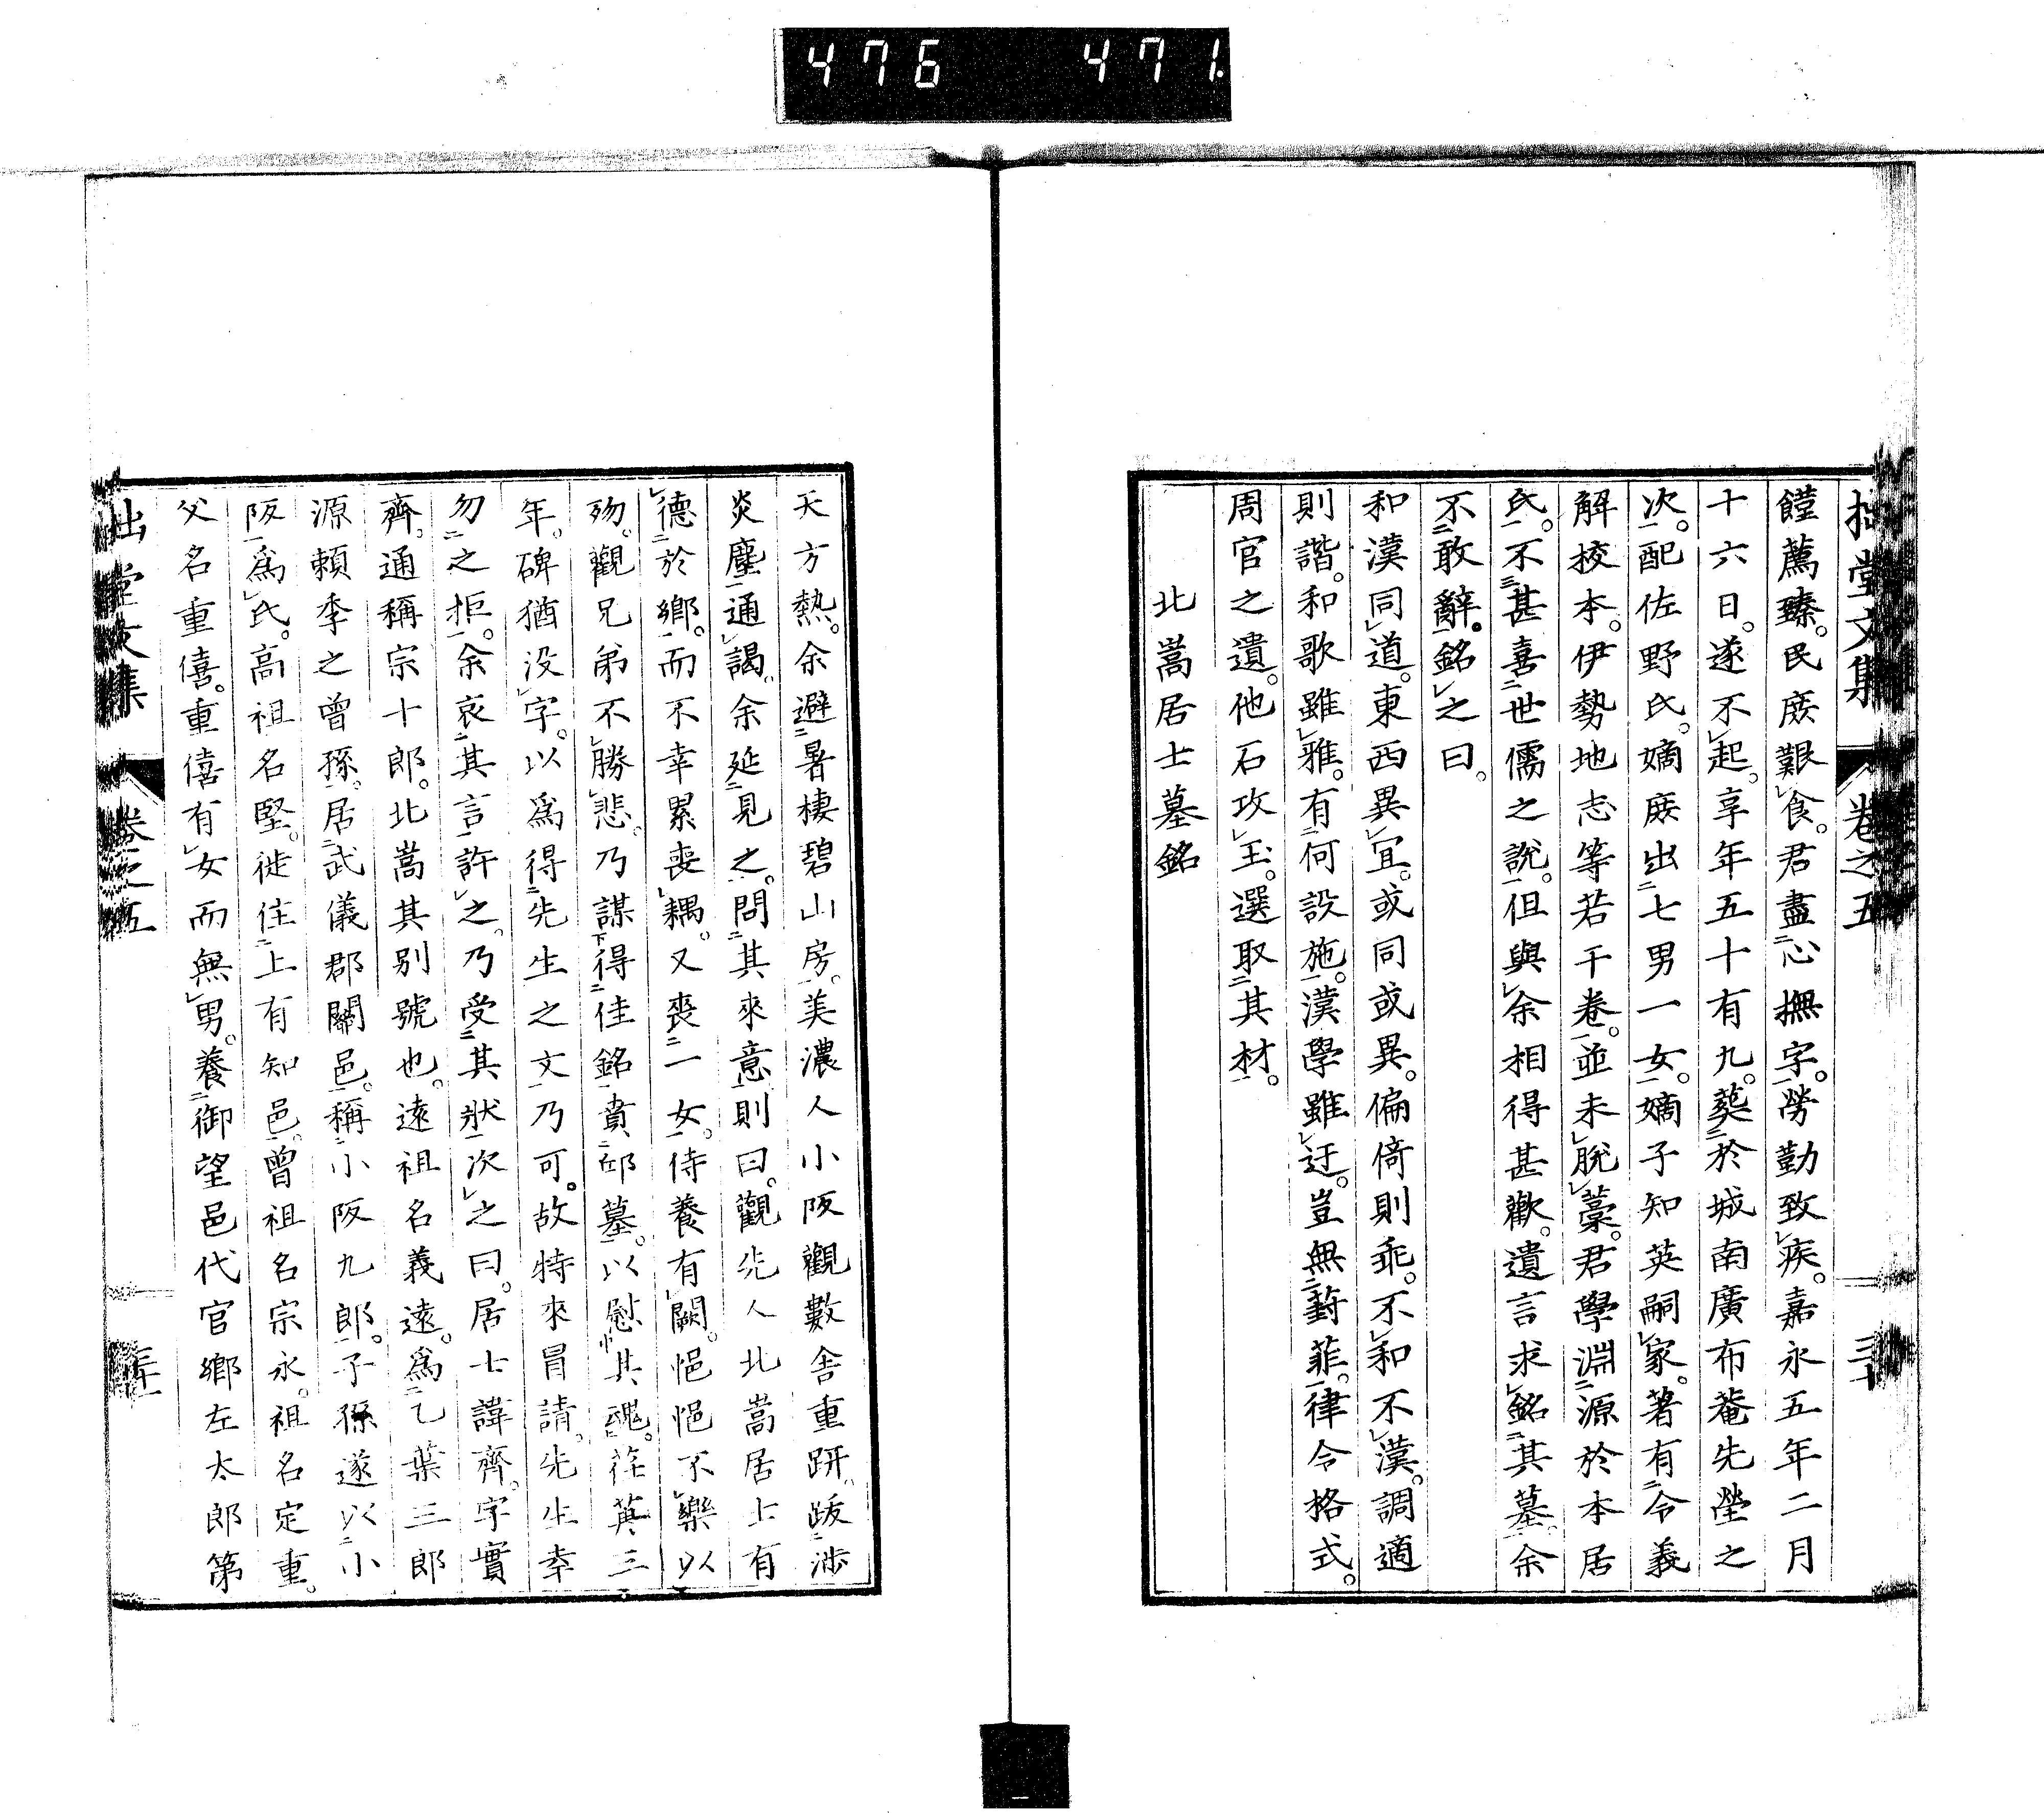 476 471
拙堂文集 卷之五 三十
饉薦臻。民庶艱食。君盡心撫字。勞勤致疾。嘉永五年二月
十六日。遂不起。享年五十有九。葬於城南廣布菴先塋之
次。配佐野氏。嫡庶出七男一女。嫡子知英嗣家。著有令義
解挍本。伊勢地志等若干卷。並未脫藁。君學淵源於本居
氏。不甚喜世儒之說。但與余相得甚歡。遺言求銘其墓。余
不敢辭。銘之曰。
和漢同道。東西異宜。或同或異。偏倚則乖。不和不漢。調適
則諧。和歌雖雅。有何設施。漢學雖迂。豈無葑菲。律令格式。
周官之遺。他石攻玉。選取其材。
北嵩居士墓銘
天方熱。余避暑棲碧山房。美濃人小阪觀數舍重趼。跋涉
炎塵通謁。余延見之。問其來意。則曰。觀先人北嵩居士有
德於鄉。而不幸累喪耦。又喪一女。侍養有闕。悒悒不樂以
歿。觀兄弟不勝悲。乃謀得佳銘賁邱墓。以慰其魂。荏苒三
年。碑猶没字。以爲得先生之文乃可。故特來冒請。先生幸
勿之拒。余哀其言許之。乃受其狀次之曰。居士諱齊。字實
齊。通稱宗十郎。北嵩其别號也。遠祖名義遠。爲乙葉三郎
源賴季之曾孫。居武儀郡關邑。稱小阪九郎。子孫遂以小
阪爲氏。高祖名堅。徙住上有知邑。曾祖名宗永。祖名定重。
父名重僖。重僖有女而無男。養御望邑代官鄉左太郎第
拙堂文集 卷之五